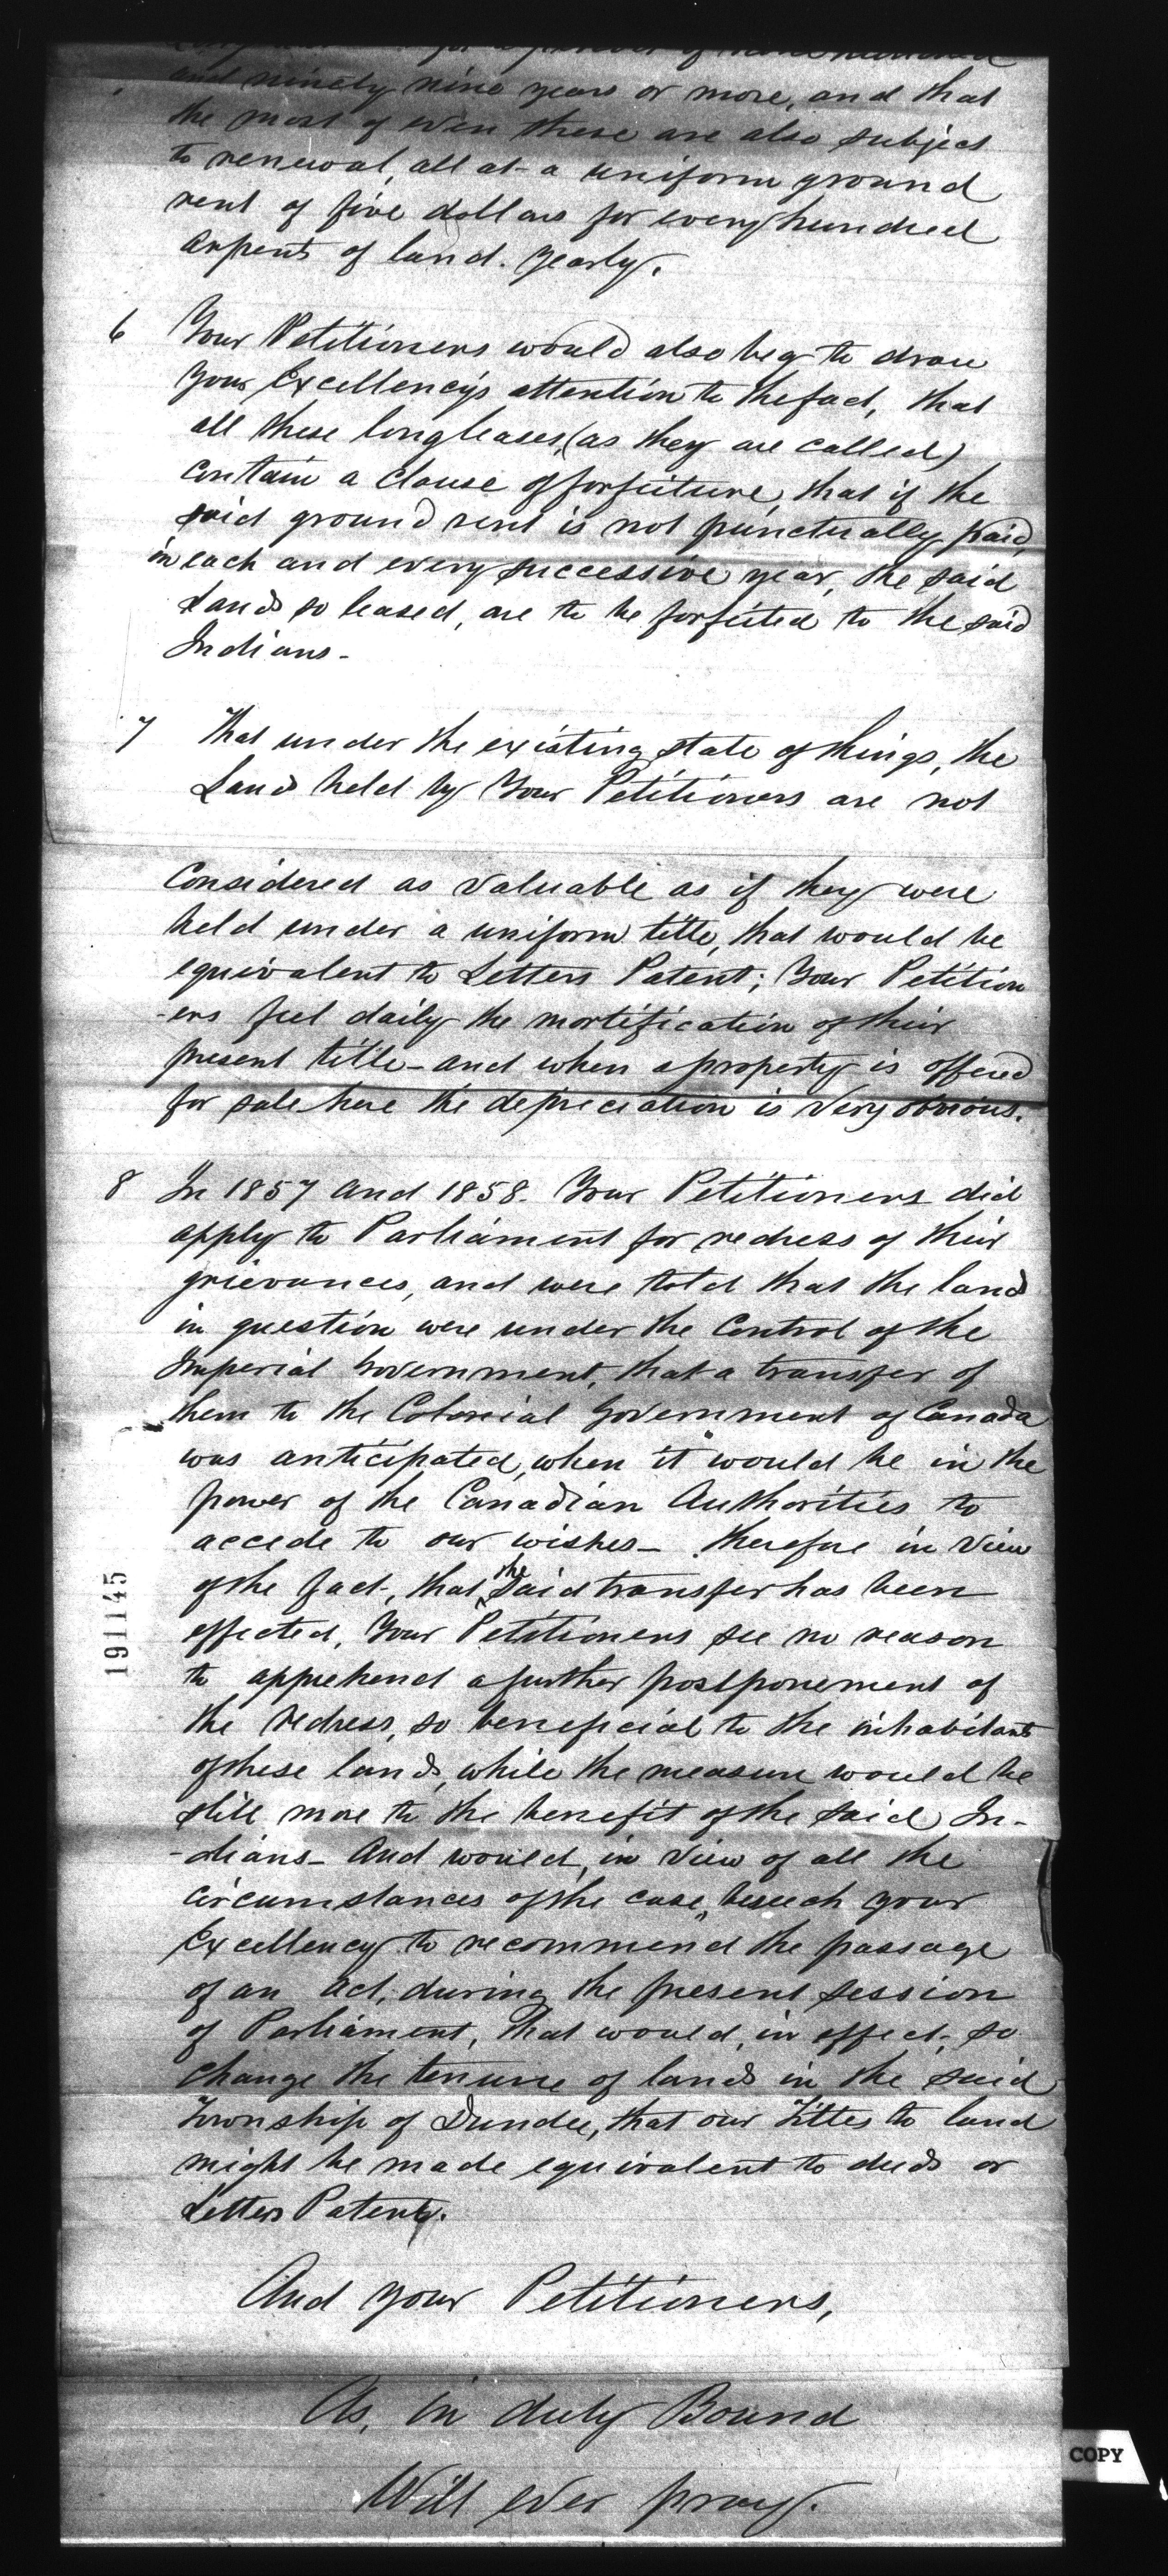 for a period of nine hundred
and ninety nine years or more, and that
the most of even these are also subject
to renewal, all at a uniform ground
rent of five dollars for every hundred
arpents of land. yearly.
6 Your Petitioners would also beg to draw
Your Excellency's attention to the fact, that
all these long leases, (as they are called)
contain a clause of forfeiture, that if the
said ground rent is not punctually paid,
in each and every successive year, the said
Lands so leased, are to be forfeited to the said
Indians -
7 That under the existing state of things, the
Lands held by Your Petitioners are not
Considered as valuable as if they were
held under a uniform title, that would be
equivalent to Letters Patent; Your Petition
-ers feel daily the mortification of their
present title - and when a property is offered
for sale here the depreciation is very obvious.
8 In 1857 and 1858. Your Petitioners did
apply to Parliament for redress of their
grievances, and were told that the lands
in question were under the Control of the
Imperial Government, that a transfer of
them to the Colonial Government of Canada
was anticipated, when it would be in the
power of the Canadian Authorities to
accede to our wishes - therefore in view
of the fact, that the said transfer has been
effected, Your Petitioners see no reason
to apprehend a further postponement of
the redress, so beneficial to the inhabitants
of these lands, while the measure would be
still more to the benefit of the said In-
-dians - And would, in view of all the
circumstances of the case, beseech your
Excellency to recommend the passage
of an act, during the present session
of Parliament, that would, in effect, so
change the tenure of lands in the said
Township of Dundee, that our Titles to land
might be made equivalent to deeds or
Letters Patent.
And your Petitioners,
As, in duty Bound
Will ever pray.
191145
COPY